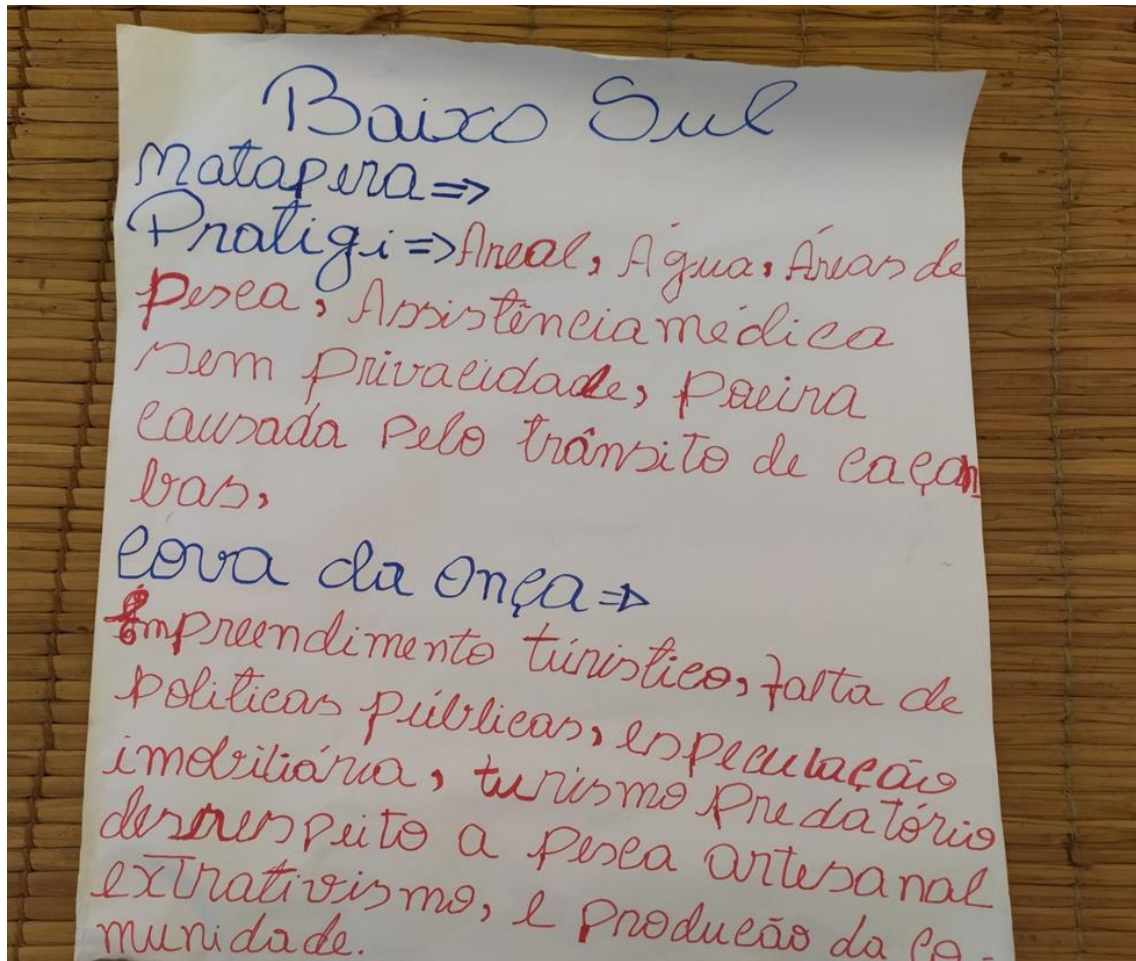 Baixo Sul
Matapera=>
Pratigi=>Areal, Água, Áreas de
Pesca, Assistência médica
sem privacidade, Poeira
causada Pelo trânsito de caçam
bas,
Cova da Onça=>
Empreendimento túristico, falta de
políticas públicas, especulação
imobiliária, turismo Predatório
desrespeito a Pesca artesanal
extrativismo, e Produção da co-
munidade.